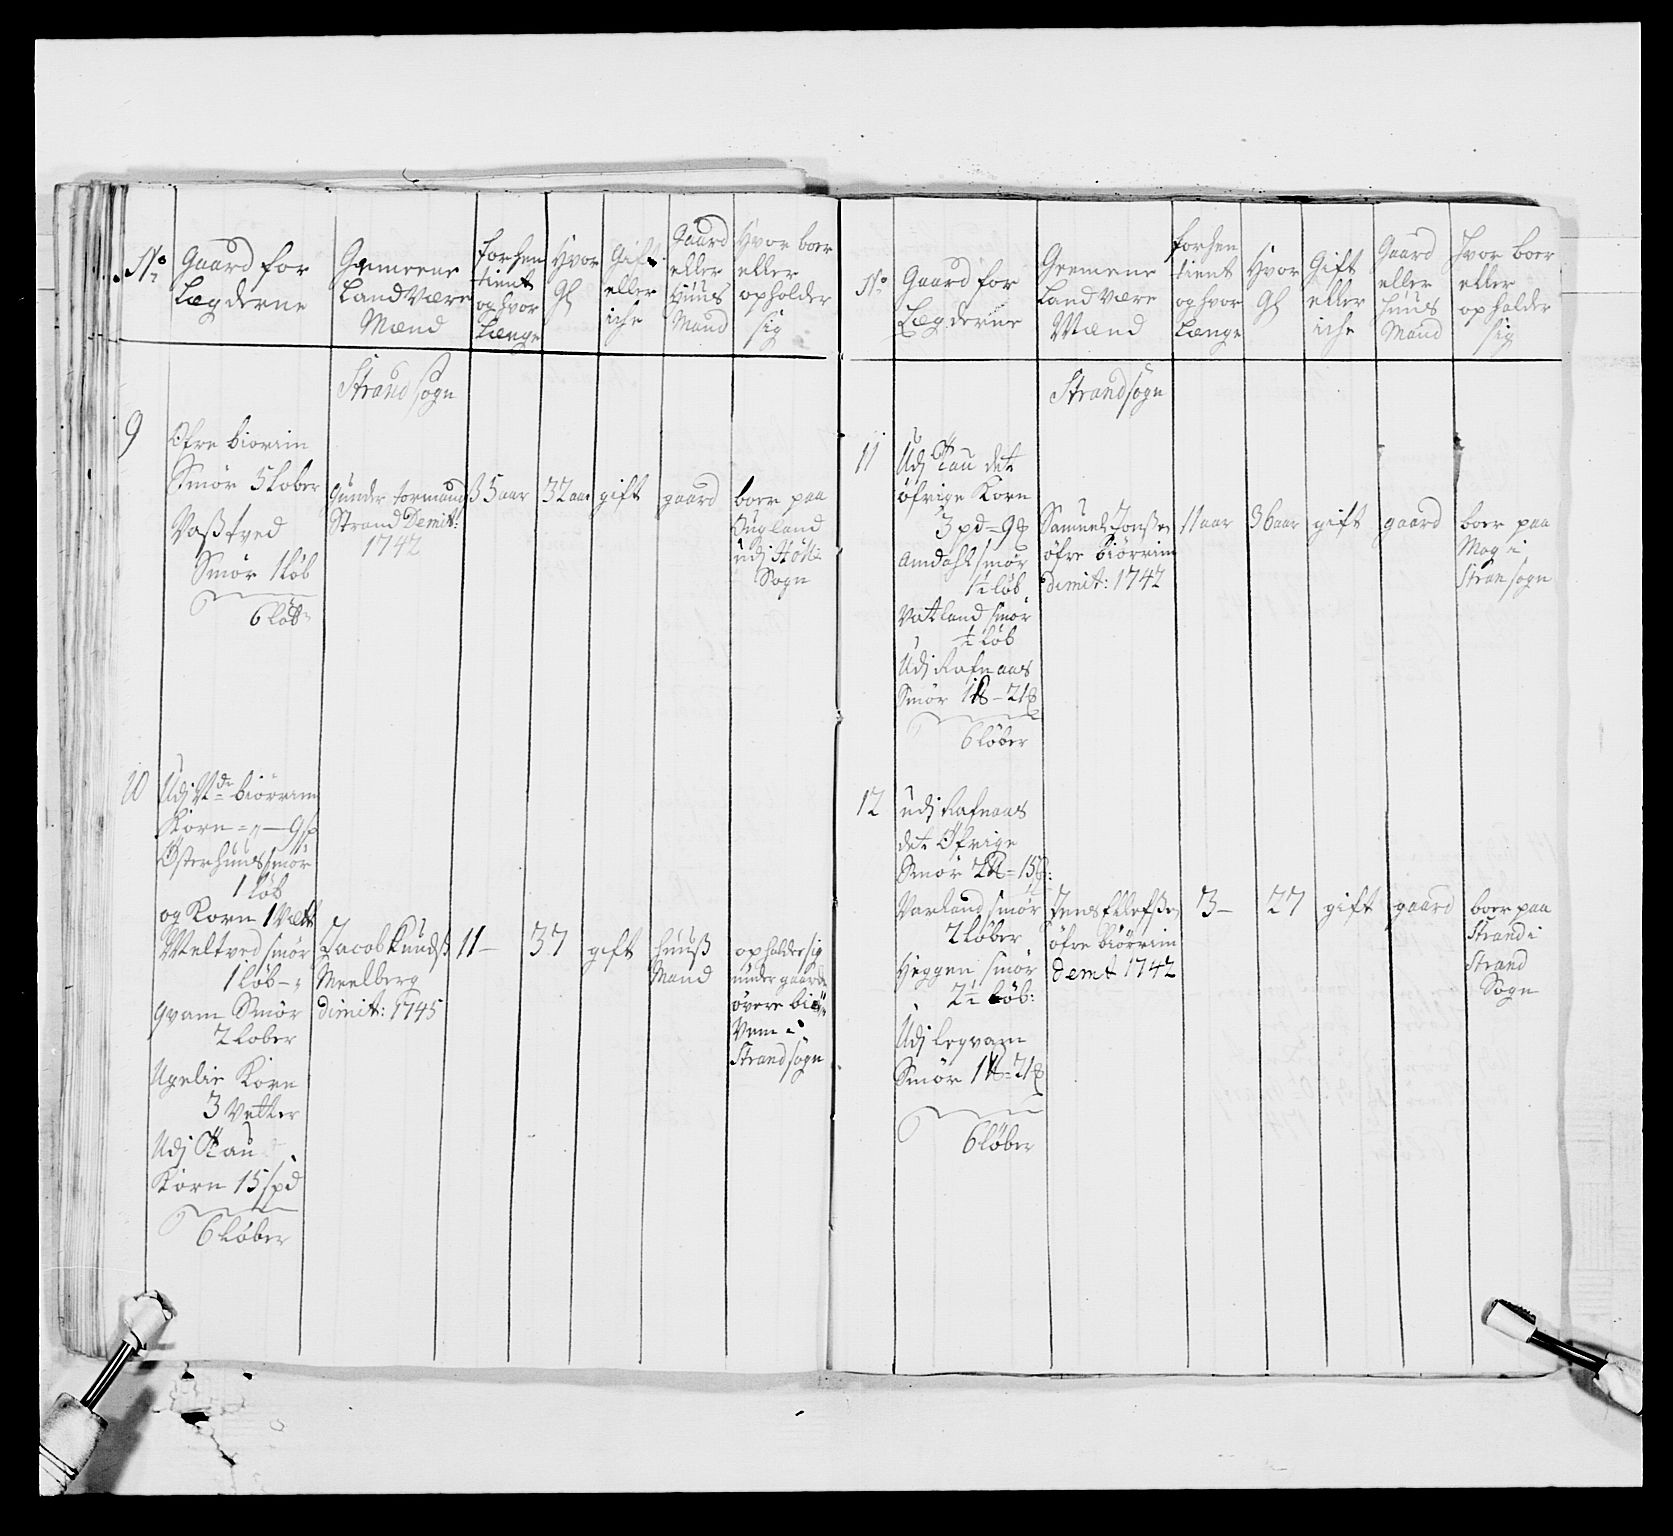 No
Gaard for
Lægderne
Gemeene
Land Være
Mænd
forhen
tient
og hvor
Længe
Hvor
Gl
Gift
eller
iche
Gaard
eller
Huus
Mand
Hvor boer
eller
opholder
sig
Strand sogn
9
Øfre biorrim
Smør 5 Løber
Vaßtved
Smør 1 Løb
6 Løb
Gunder tormund
Strand Demit:
1742
35 aar
32 aar
gift
gaard
boer paa
udj Høle
Sogn
10
Udj Nde biörrim
Korn
Østerhuus smør
1 Løb
og Korn 1 Vætt
Meltved smør
1 Løb
Qvam Smør
2 Løber
Ugelie Korn
3 Vetter
Udj Tau
Korn 15 spd
6 Løber
Jacob Knudß
Meelberg
dimit: 1745
11 –
37
gift
huuß
Mand
opholder sig
under gaarde
øvere biör
Strand sogn
No
Gaard for
Lægderne
Gemene
Land være
Mænd
forhen
tient
og hvor
Længe
Hvor
Gl
Gift
eller
iche
Gaard
eller
Huus
Mand
Hvor boer
eller
opholder
sig
Strand sogn
11
Udj Tau det
øfrige Korn
3 pd = 9
Amdahl smør
1½ Løb
Vatland smør
½ Løb
Udj Rafnaas
Smør 1 – 21
6 Løber
Samuel Jonßen
øfre biörrim
dimit: 1742
11 aar
36 aar
gift
gaard
boer paa
Mog i
Stran sogn
12
udj Rafnaas
det Øfrige
Smør 2 = 15
Varland smør
2 Løber
Heggen smør
2½ Løb:
Udj Legvam
Smør 1 = 21
6 Løber
Jens Ellefßen
øfre biörrim
demt 1742
3 –
27
gift
gaard
boer paa
Strand i
Strand
Sogn